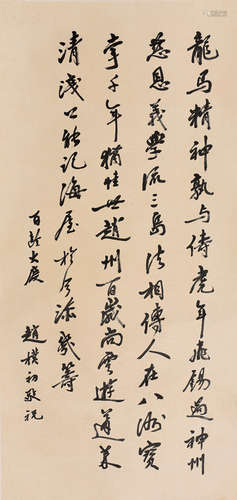 龍馬精神孰與儔虎年飛錫過神州
慈恩義學流三島法相傳人在八洲寶
掌千年猶住世趙州百歲尚雲遊蓬萊
清淺公能記海屋於今添幾籌
百齡大慶
趙樸初敬祝